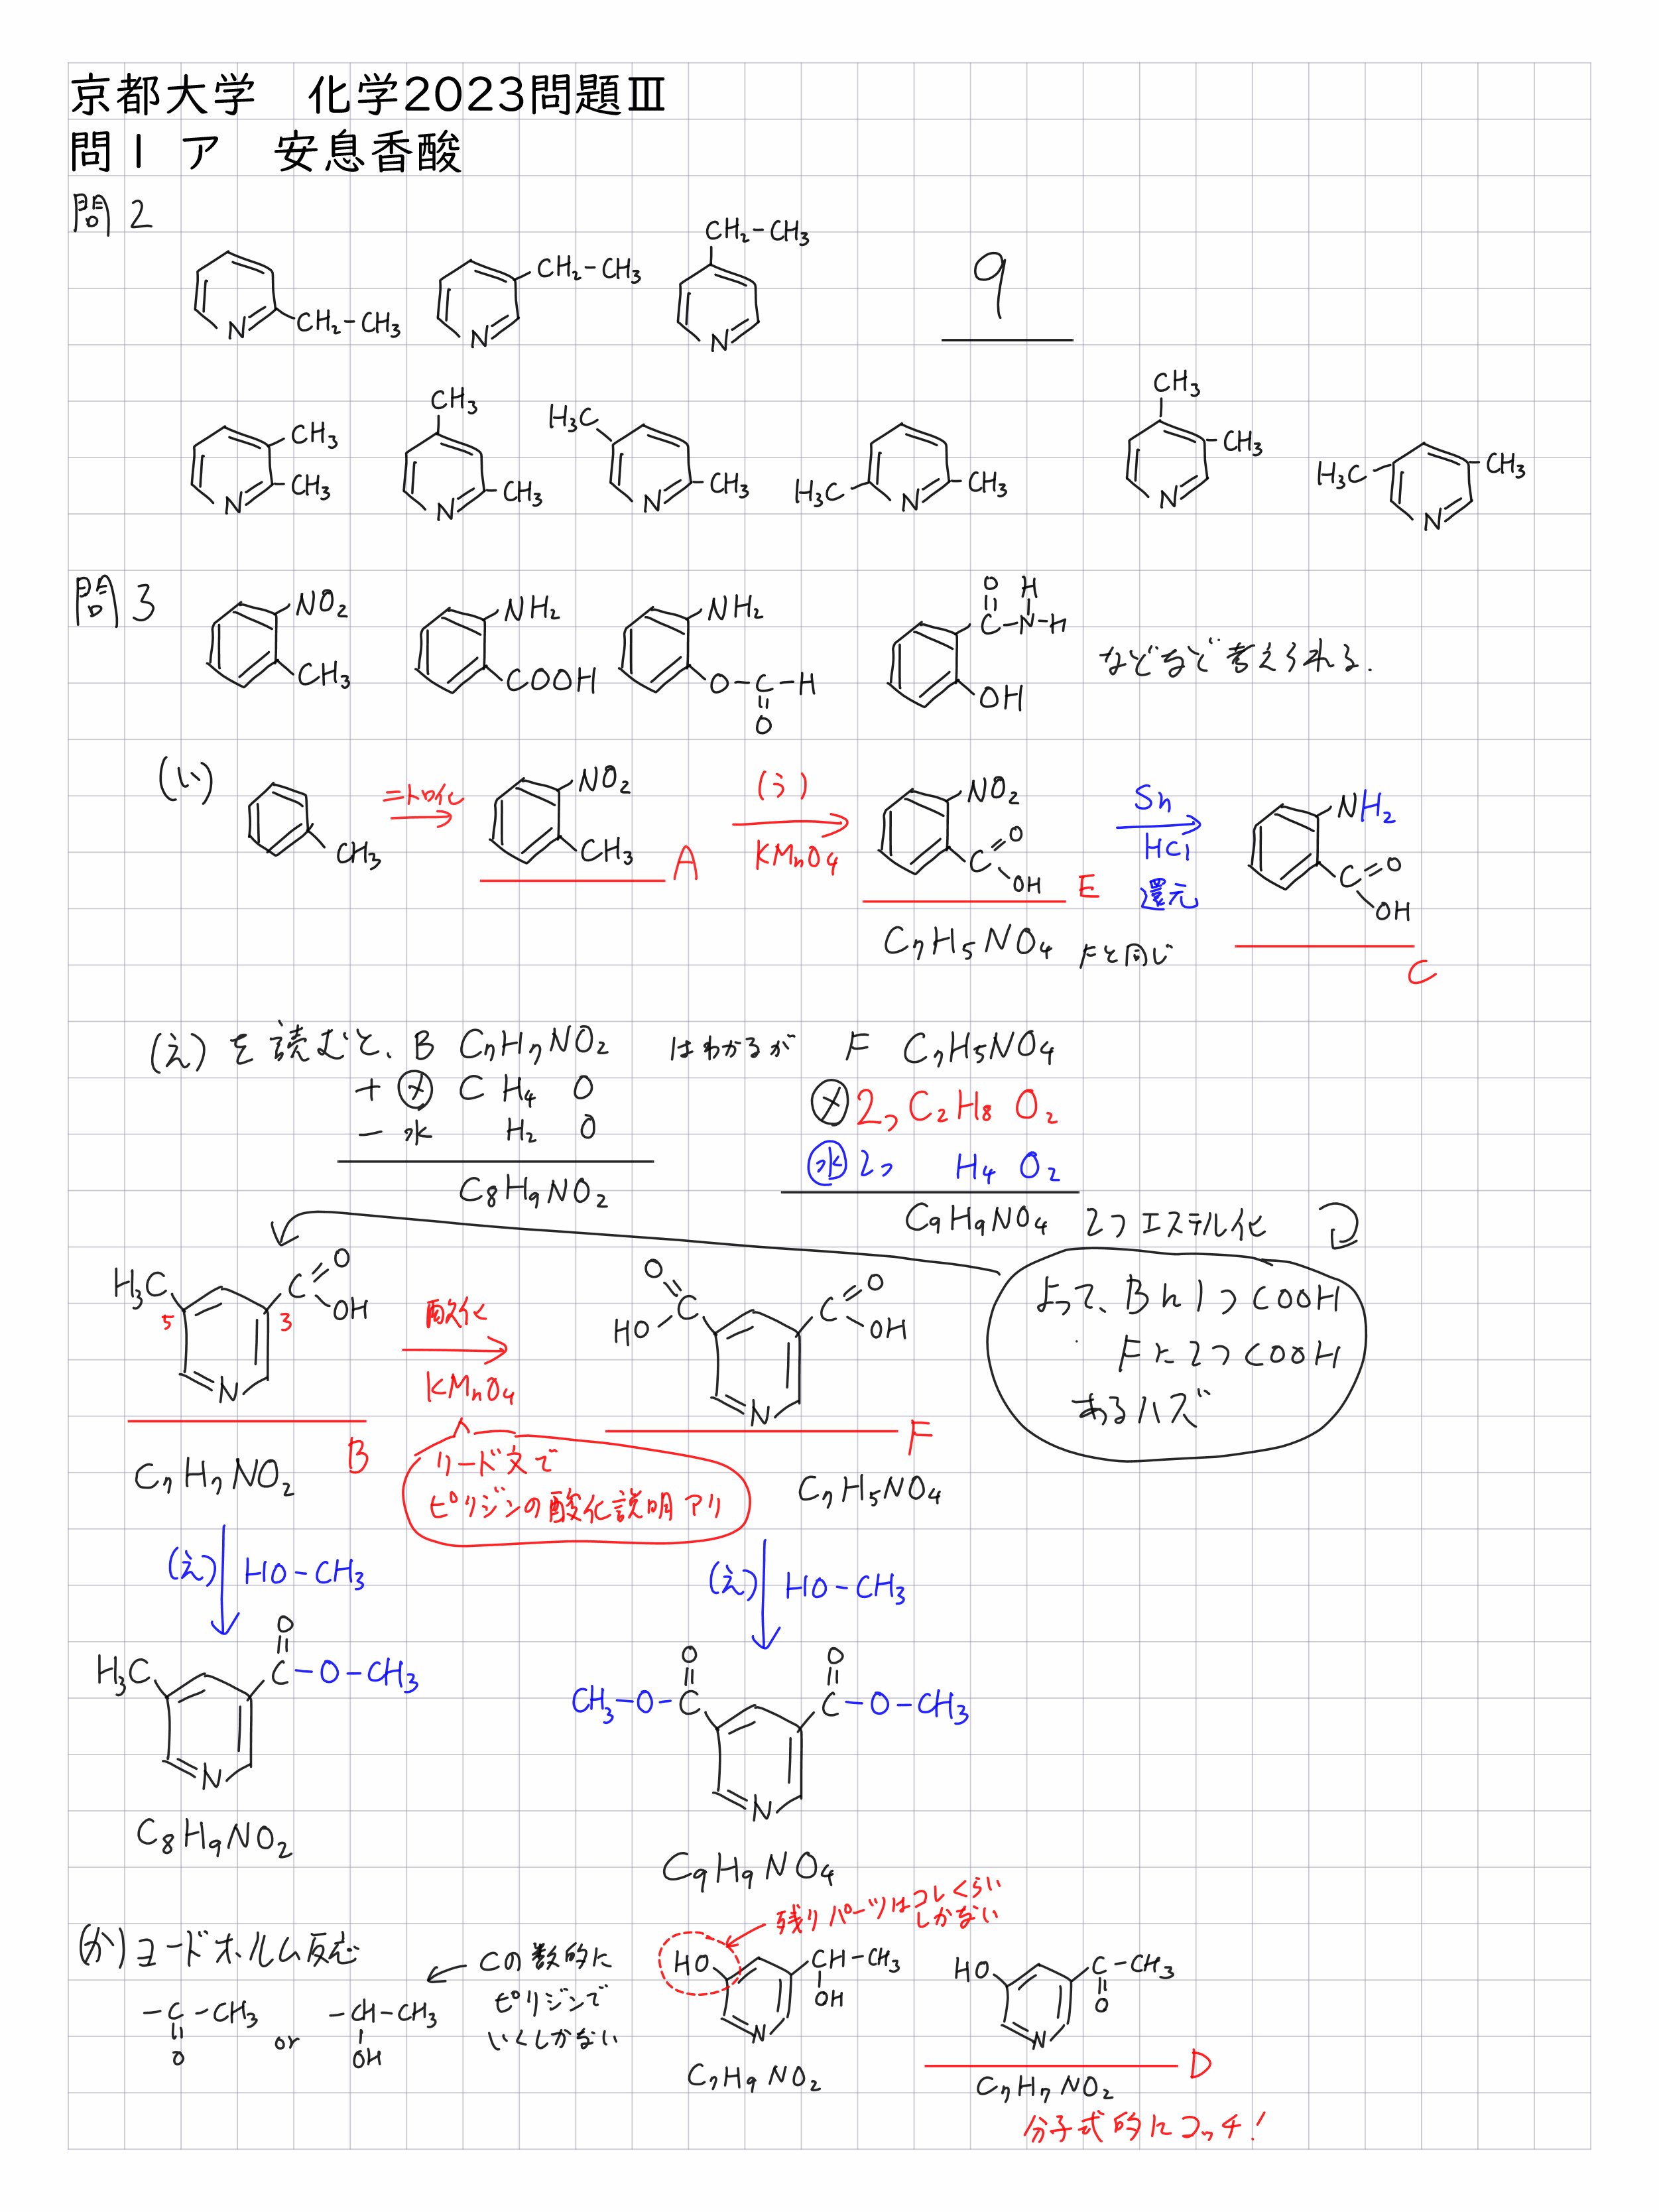 京都大学　化学2023問題Ⅲ
問1 ア　安息香酸
問2
CH₂-CH₃
CH₂-CH₃
CH₂-CH₃
N
N
N
9
CH₃
CH₃
N
CH₃
CH₃
N
H₃C
CH₃
N
H₃C
CH₃
N
CH₃
CH₃
N
H₃C
CH₃
N
問3
NO₂
CH₃
NH₂
COOH
NH₂
O-C-H
O
O H
C-N-H
OH
などなど考えられる.
(い)
CH₃
ニトロ化
NO₂
CH₃
A
(う)
KMnO₄
NO₂
C O
OH
E
C₇H₅NO₄ Fと同じ
Sn
HCl
還元
NH₂
C O
OH
C
(え)を読むと、B C₇H₇NO₂ はわかるが F C₇H₅NO₄
+ メ C H₄ O
- 水 H₂ O
C₈H₉NO₂
メ 2つ C₂H₈ O₂
水 2つ H₄ O₂
C₉H₉NO₄ 2つエステル化
よって、Bに1つCOOH
Fに2つCOOH
あるハズ
H₃C
C O
OH
5 3
N
B
C₇H₇NO₂
酸化
KMnO₄
リード文で
ピリジンの酸化説明アリ
O O
HO C C OH
N
F
C₇H₅NO₄
(え) HO-CH₃
(え) HO-CH₃
O
H₃C C-O-CH₃
N
C₈H₉NO₂
O O
CH₃-O-C C-O-CH₃
N
C₉H₉NO₄
(か)ヨードホルム反応
-C-CH₃
O
or
-CH-CH₃
OH
Cの数的に
ピリジンで
いくしかない
残りパーツはコレくらい
しかない
HO CH-CH₃
OH
N
C₇H₉NO₂
HO C-CH₃
O
N
D
C₇H₇NO₂
分子式的にコッチ!